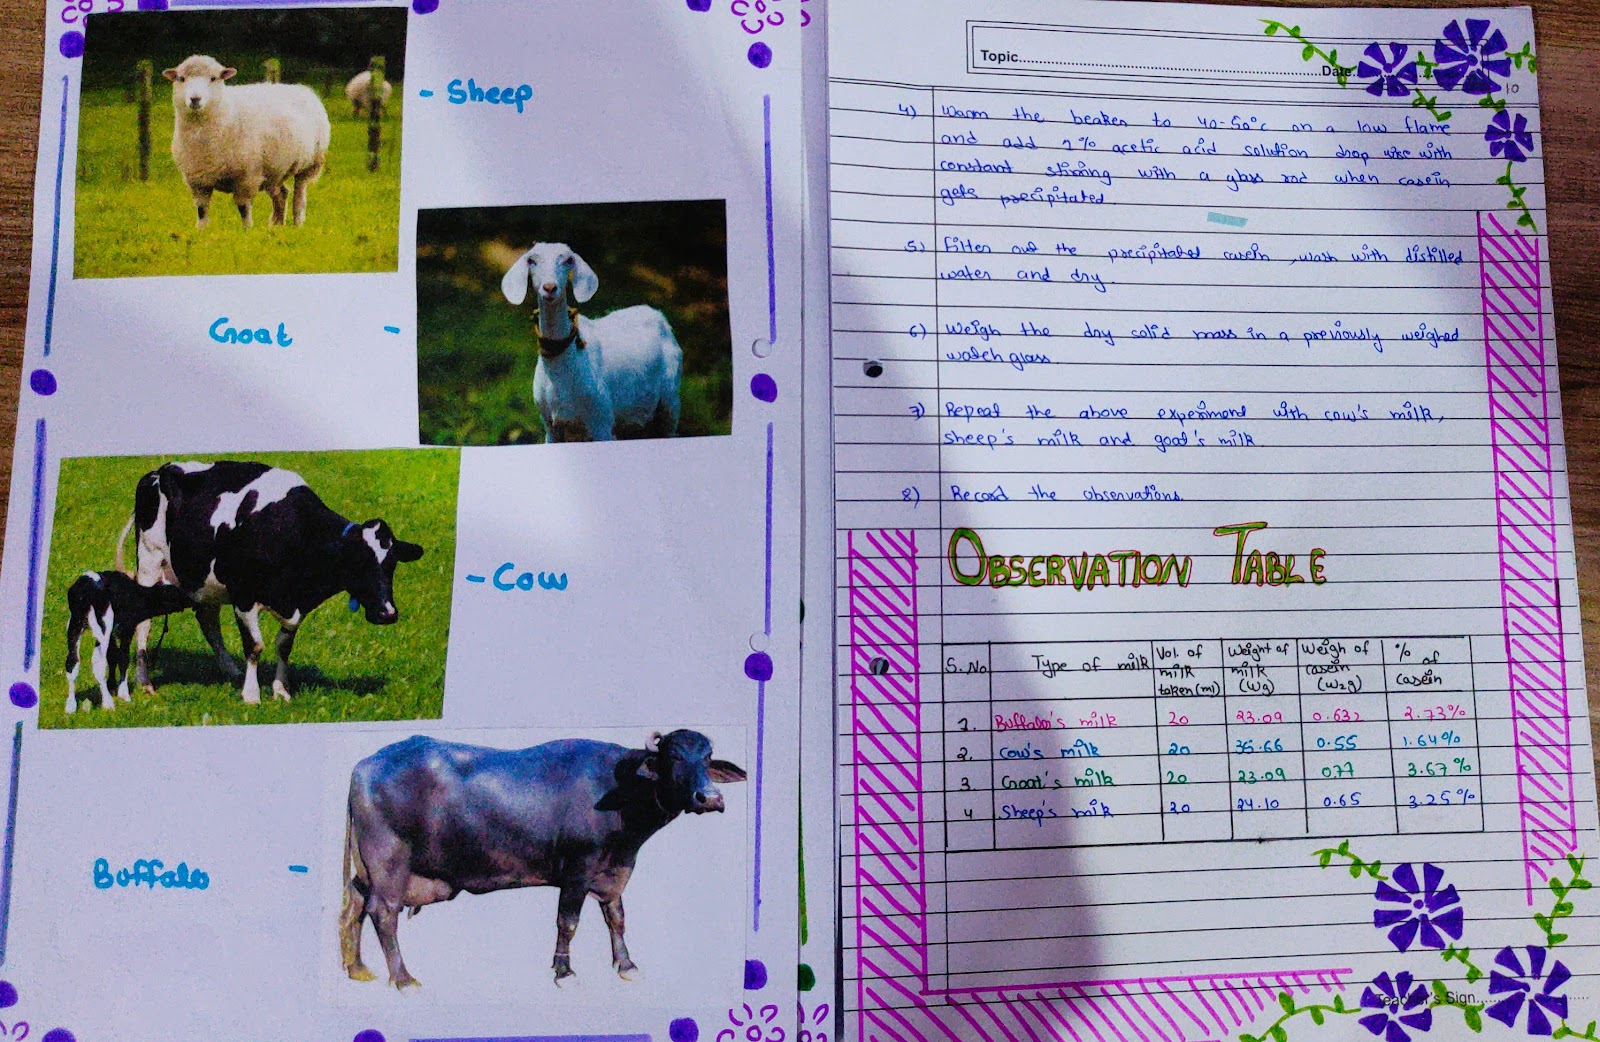 - Sheep
Goat -
- Cow
Buffalo -
Topic................Date................
10
4) Warm the beaker to 40-50°c on a low flame
and add 1% acetic acid solution drop wise with
constant stirring with a glass rod when casein
gets precipitated.
5) Filter out the precipitated casein, wash with distilled
water and dry.
6) Weigh the dry solid mass in a previously weighed
watch glass.
7) Repeat the above experiment with cow's milk,
sheep's milk and goat's milk.
8) Record the observations.
OBSERVATION TABLE
S.No Type of milk Vol. of milk taken (ml) Weight of milk (W1g) Weigh of casein (W2g) % of casein
1. Buffalo's milk 20 23.09 0.632 2.73%
2. Cow's milk 20 35.66 0.55 1.64%
3 Goat's milk 20 23.09 0.77 3.67%
4 Sheep's milk 20 24.10 0.65 3.25%
Teacher's Sign................